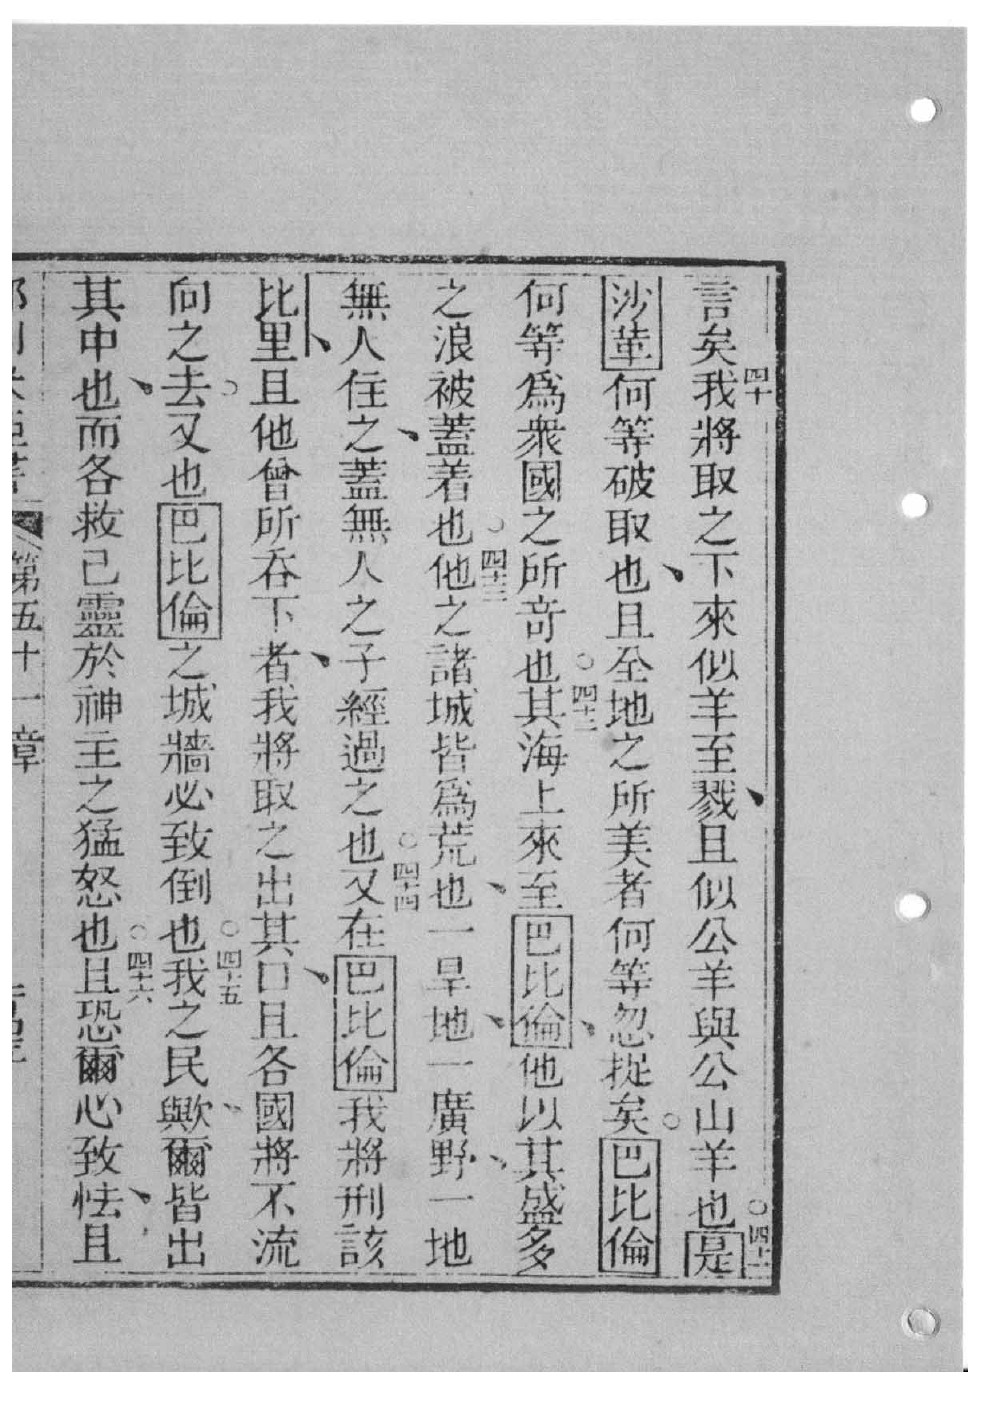 言矣四十我將取之下來似羊至戮且似公羊與公山羊也○四十一是
沙華何等破取也且全地之所美者何等忽捉矣○巴比倫
何等爲衆國之所奇也○四十二其海上來至巴比倫他以其盛多
之浪被蓋着也○四十三他之諸城皆爲荒也一旱地一廣野一地
無人住之蓋無人之子經過之也○四十四又在巴比倫我將刑該
比里且他曾所吞下者我將取之出其口且各國將不流
向之去○又也巴比倫之城牆必致倒也○四十五我之民歟爾皆出
其中也而各救己靈於神主之猛怒也○四十六且恐爾心致怯且
第五十一章